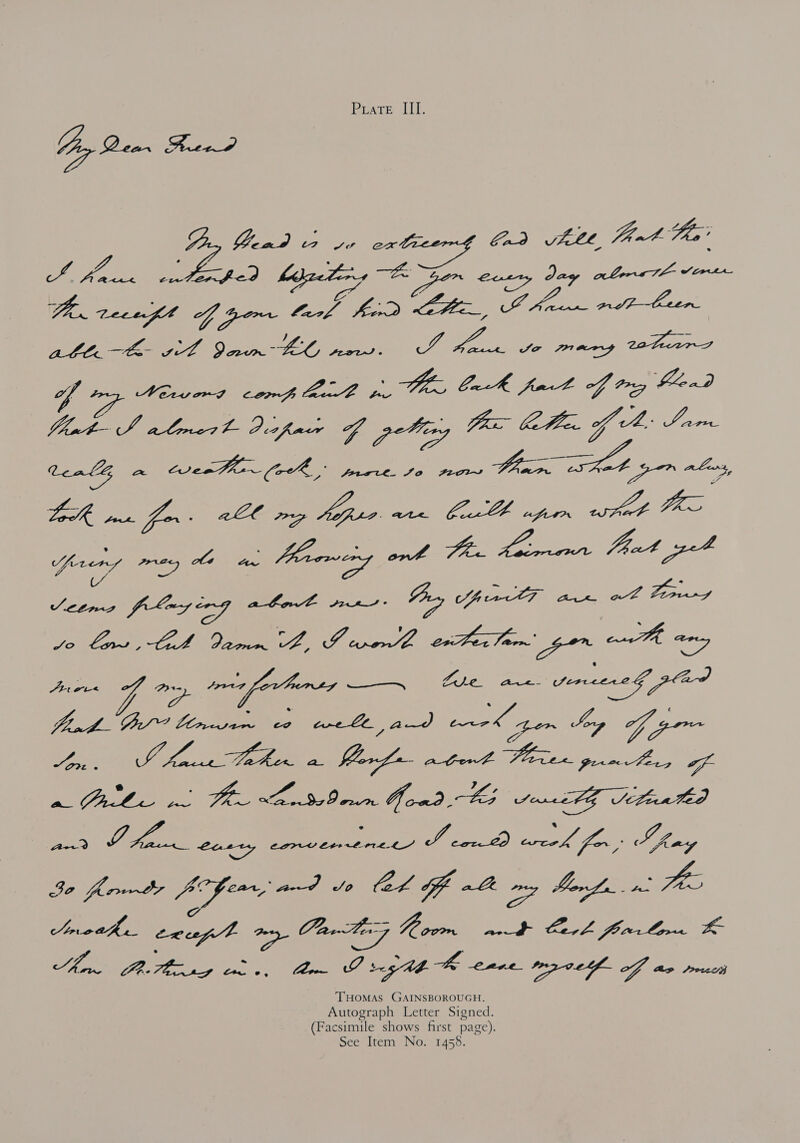 PLATE III.
My Dear Friend
My Head is so extreemly bad still, that tho'
I have intended writing to you every day almost since
the receipt of your last kind Letter, I have not been
able to sit down till now. I have so many returns
of my Nervous complaint in the back part of my Head
that I almost dispair of getting the better of it: I am
really a weather Cock; more so now than what you alway,
took me for. all my hopes are built upon what the
Spring may do in throwing out the Heimour that yet
seems playing about me. My Spirits are at times
so low, but Damn it, I won't entertain you with any
more of my misfortunes — We are sincerely glad
that Mrs Unwin is well, and wish you Joy of your
Son. I have taken a House about three quarters of
a Mile in the Lansdown Road, 'tis sweetly situated
and I have every convenience I could wish for; I pay
30 pounds pr year; and so let off all my House in the
Smoake except my Painting Room and best parlour to
show Pictures in. Am I right to ease myself of as much
THOMAS GAINSBOROUGH.
Autograph Letter Signed.
(Facsimile shows first page).
See Item No. 1458.